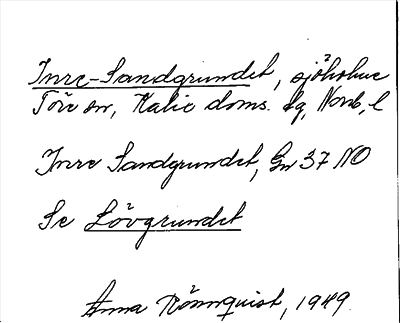 Inre-Sandgrundet, sjöhohuc
Töre sn, Kalix doms. lg, Norrb, l
Inre Sandgrundet, Gn 37 NO
Se Lövgrundet
Anna Rönnquist, 1949.